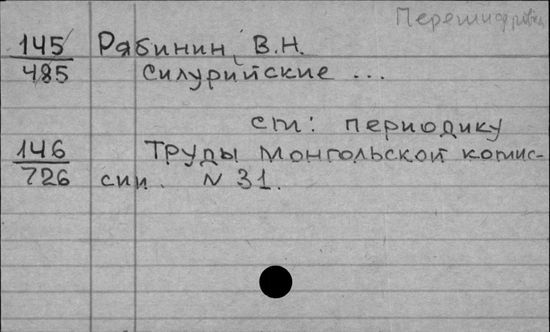 Перешифровка
145 Рябинин, В.Н.
485 Силурийские ...
см: периодику
146 Труды Монгольской комис-
726 сии. N 31.